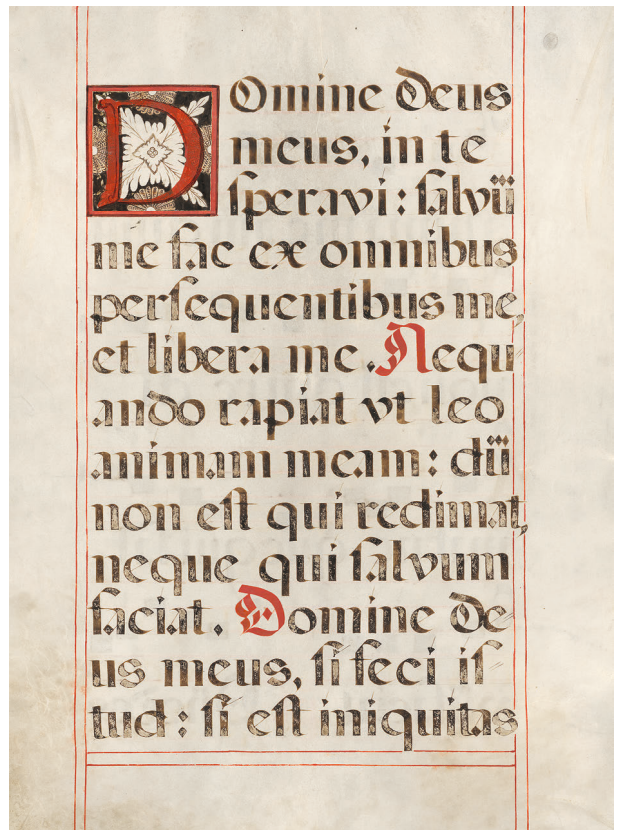 Domine Deus
meus, in te
ſperavi: ſalvũ
me fac ex omnibus
perſequentibus me,
et libera me. Nequ
ando rapiat vt leo
animam meam: dũ
non eſt qui redimat,
neque qui ſalvum
faciat. Domine De
us meus, ſi feci iſ
tud: ſi eſt iniquitas